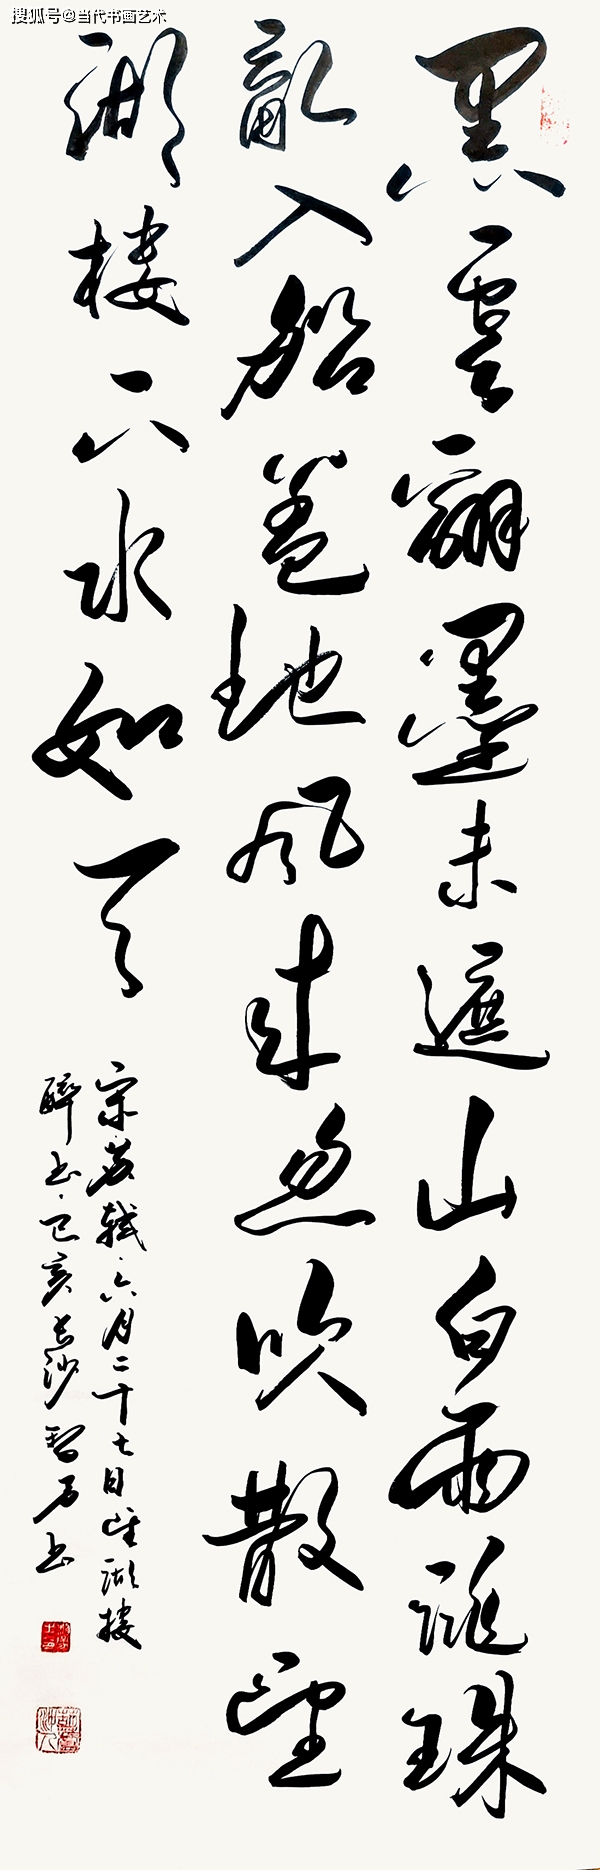 搜狐号@当代书画艺术
黑雲翻墨未遮山白雨跳珠
亂入船卷地風来忽吹散望
湖樓下水如天
宋蘇軾·六月二十七日望湖樓
醉书·己亥长沙智石书